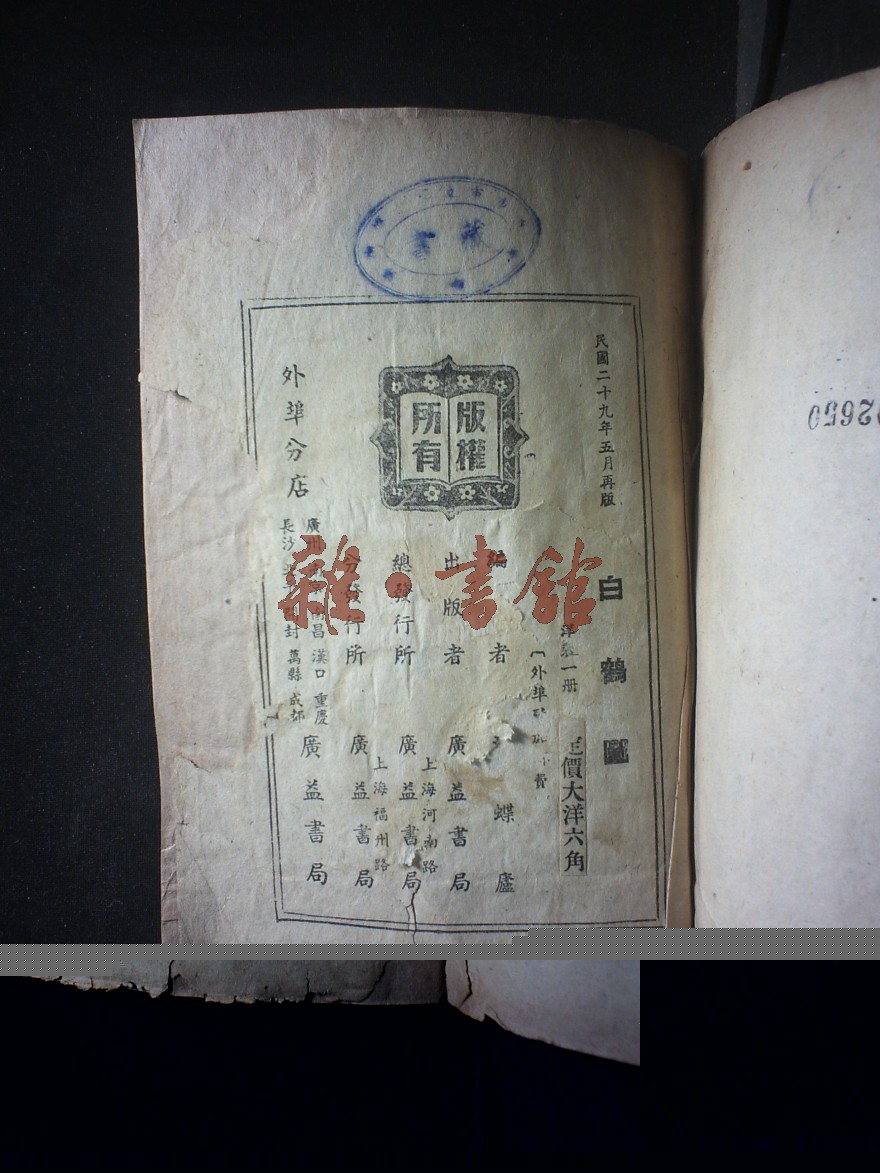 藏書
民國二十九年五月再版
白鶴圖
洋裝一册
正價大洋六角
外埠
費
版權所有
編者
蝶廬
出版者
廣益書局
總發行所
上海河南路
廣益書局
分發行所
上海福州路
廣益書局
外埠分店
廣州
南昌 漢口 重慶
長沙
開封 萬縣 成都
廣益書局
雜·書館
02650